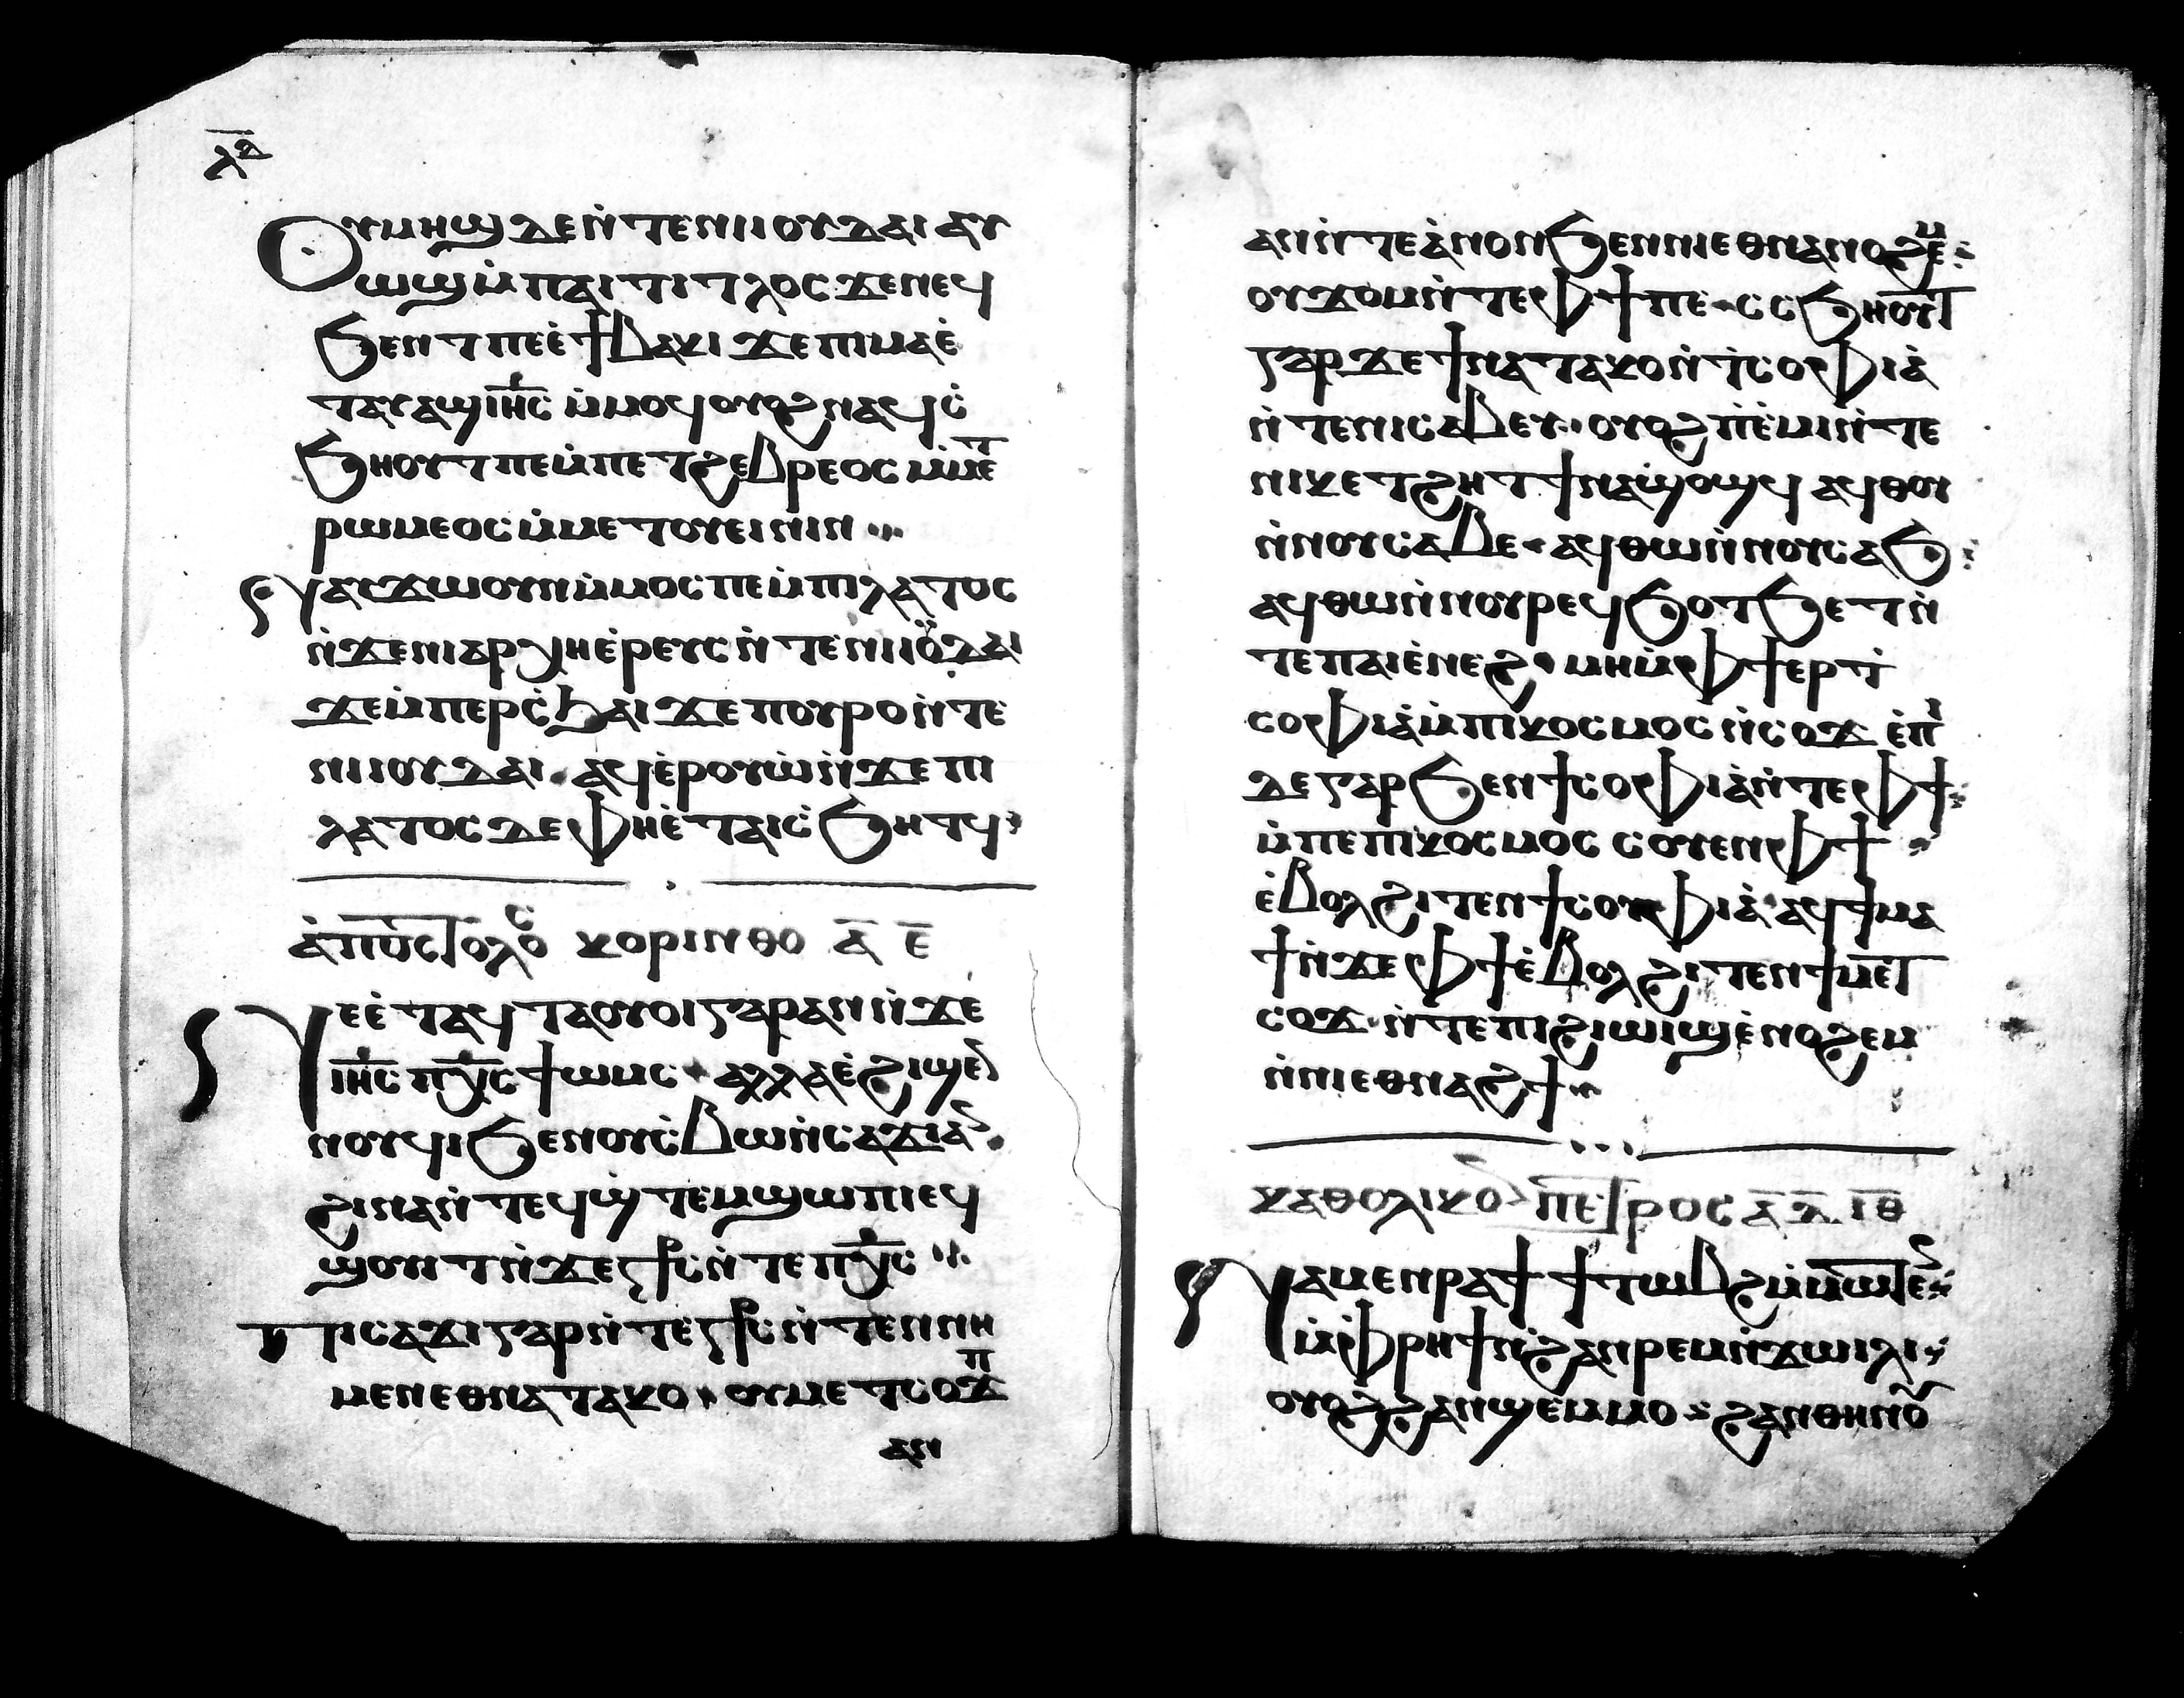 ⲗ̅ⲇ̅
Ⲟⲩⲙⲏϣ ⲇⲉ ⲛ̀ⲧⲉⲛⲓⲓⲟⲩⲇⲁⲓ ⲁⲩ
ⲱϣ ⲙ̀ⲡⲁⲓⲧⲓⲧⲗⲟⲥ ϫⲉⲛⲉϥ
ϧⲉⲛⲧ ⲡⲉ ⲉ̀ϯⲃⲁⲕⲓ ϫⲉ ⲡⲓⲙⲁ ⲉ̀
ⲧⲁⲩⲁϣ ⲓⲏ̅ⲥ̅ ⲙ̀ⲙⲟϥ ⲟⲩⲟϩ ⲛⲁϥⲥ̀
ϧⲏⲟⲩⲧ ⲡⲉ ⲙ̀ⲡⲉⲧϩⲉⲃⲣⲉⲟⲥ ⲙ̀ⲙⲉⲧ
ⲣⲱⲙⲉⲟⲥ ⲙ̀ⲙⲉⲧⲟⲩⲉⲓⲛⲓⲛ
Ⲛⲁⲩϫⲱ ⲟⲩⲛ ⲙ̀ⲙⲟⲥ ⲡⲉ ⲙ̀ⲡⲓⲗⲁⲧⲟⲥ
ⲛ̀ϫⲉⲛⲓⲁⲣⲭⲏⲉ̀ⲣⲉⲩⲥ ⲛ̀ⲧⲉⲛⲓⲓⲟⲩⲇⲁⲓ
ϫⲉ ⲙ̀ⲡⲉⲣⲥ̀ϧⲁⲓ ϫⲉ ⲡⲟⲩⲣⲟ ⲛ̀ⲧⲉ
ⲛⲓⲓⲟⲩⲇⲁⲓ ⲁϥⲉ̀ⲣⲟⲩⲱ̀ ⲛ̀ϫⲉ ⲡⲓ
ⲗⲁⲧⲟⲥ ⲇⲉ ⲫⲏⲉ̀ⲧⲁⲓⲥ̀ϧⲏⲧϥ
ⲁ̀ⲡⲟⲥⲧⲟⲗⲟⲥ ⲕⲟⲣⲓⲛⲑⲟ ⲁ̅ ⲉ̅
Ⲛⲉⲉ̀ⲧⲁϥⲧⲁⲟⲩⲟⲓ ⲅⲁⲣ ⲁⲛ ⲛ̀ϫⲉ
ⲓⲏ̅ⲥ̅ ⲡⲭ̅ⲥ̅ ϯⲱⲙⲥ ⲁⲗⲗⲁ ⲉ̀ϩⲓϣⲉⲛ
ⲛⲟⲩϥⲓ ϧⲉⲛⲟⲩⲥ̀ⲃⲱ ⲛ̀ⲥⲁϫⲓ ⲁⲛ
ϩⲓⲛⲁ ⲛ̀ⲧⲉϥϣ̀ⲧⲉⲙϣⲱⲡⲓ ⲉϥ
ϣⲟⲩⲓⲧ ⲛ̀ϫⲉ ⲥ̅ϯⲥ̅ ⲛ̀ⲧⲉ ⲡⲭ̅ⲥ̅
Ⲡⲓⲥⲁϫⲓ ⲅⲁⲣ ⲛ̀ⲧⲉ ⲥ̅ϯⲥ̅ ⲛ̀ⲧⲉⲛⲛⲏ
ⲙⲉⲛ ⲉⲑⲛⲁⲧⲁⲕⲟ ⲟⲩⲙⲉⲧⲥⲟϫ ⲡ
ⲁⲛ
ⲁⲛ ⲛ̀ⲧⲉ ⲁ̀ⲛⲟⲛ ϧⲉⲛ ⲛⲓⲉⲑⲛⲁⲛⲟϩⲉⲙ
ⲟⲩϫⲟⲙ ⲛ̀ⲧⲉⲫϯ ⲡⲉ ⲥⲥϧⲏⲟⲩⲧ
ⲅⲁⲣ ϫⲉ ϯⲛⲁⲧⲁⲕⲟ ⲛ̀ϯⲥⲟⲫⲓⲁ̀
ⲛ̀ⲧⲉⲛⲓⲥⲁⲃⲉⲩ ⲟⲩⲟϩ ⲡ̀ⲉ̀ⲙⲓ ⲛ̀ⲧⲉ
ⲛⲓⲕⲉⲧϩⲏⲧ ϯⲛⲁϣⲟϣϥ ⲁϥⲑⲱⲛ
ⲛ̀ⲛⲟⲩⲥⲁⲃⲉ ⲁϥⲑⲱⲛ ⲛ̀ⲛⲟⲩⲥⲁϧ
ⲁϥⲑⲱⲛ ⲛ̀ⲛⲟⲩⲣⲉϥϧⲟⲧϧⲉⲧ ⲛ̀
ⲧⲉ ⲡⲁⲓⲉ̀ⲛⲉϩ ⲙⲏ ⲙ̀ⲫϯ ⲉⲣϯ
ⲥⲟⲫⲓⲁ̀ ⲙ̀ⲡⲓⲕⲟⲥⲙⲟⲥ ⲛ̀ⲥⲟϫ ⲉ̀ⲡⲓ
ⲇⲉ ⲅⲁⲣ ϧⲉⲛ ϯⲥⲟⲫⲓⲁ̀ ⲛ̀ⲧⲉ ⲫϯ
ⲙ̀ⲡⲉ ⲡⲓⲕⲟⲥⲙⲟⲥ ⲥⲟⲩⲉⲛ ⲫϯ
ⲉ̀ⲃⲟⲗ ϩⲓⲧⲉⲛ ϯⲥⲟⲫⲓⲁ̀ ⲁϥϯⲙⲁ
ϯ ⲛ̀ϫⲉ ⲫϯ ⲉ̀ⲃⲟⲗ ϩⲓⲧⲉⲛ ϯⲙⲉⲧ
ⲥⲟϫ ⲛ̀ⲧⲉ ⲡⲓϩⲓⲱⲓϣ ⲉ̀ⲛⲟϩⲉⲙ
ⲛ̀ⲛⲓⲉⲑⲛⲁϩϯ
ⲕⲁⲑⲟⲗⲓⲕⲟⲛ ⲡⲉⲧⲣⲟⲥ ⲁ̅ ⲗ̅ ⲓ̅ⲑ̅
Ⲛⲁⲙⲉⲛⲣⲁϯ ϯⲧⲱⲃϩ ⲙ̀ⲙⲱⲧⲉⲛ
ⲙ̀ⲫⲣⲏϯ ⲛ̀ϩⲁⲛⲣⲉⲙⲛ̀ϫⲱⲓⲗⲓ
ⲟⲩⲟϩ ϩⲁⲛϣⲉⲙⲙⲟ ϩⲁⲛⲑⲏⲛⲟⲩ